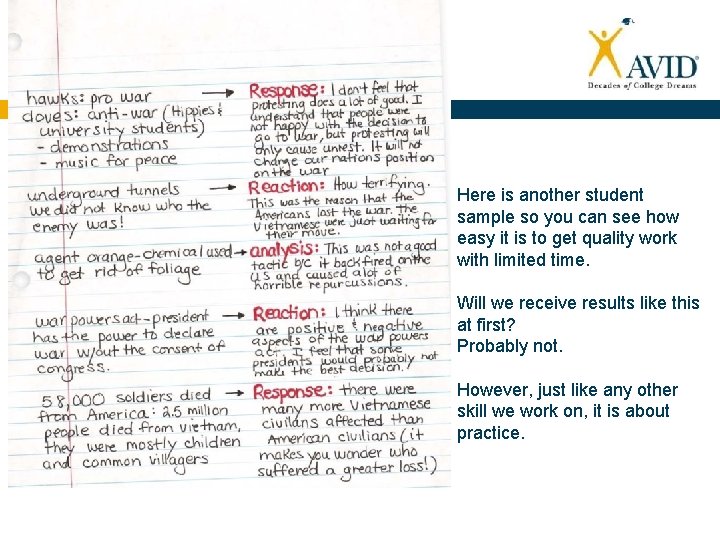 hawks: pro war
doves: anti-war (Hippies &
university students)
- demonstrations
- music for peace
Response: I don't feel that
protesting does a lot of good. I
understand that people were
not happy with the decision to
go to war, but protesting will
only cause unrest. It will not
change our nations position
on the war
underground tunnels
we did not know who the
enemy was!
Reaction: How terrifying.
This was the reason that the
Americans lost the war. The
Vietnamese were just waiting for
their move.
agent orange-chemical used
to get rid of foliage
analysis: This was not a good
tactic b/c it backfired on the
US and caused a lot of
horrible repurcussions.
war powers act - president
has the power to declare
war w/out the consent of
congress.
Reaction: I think there
are positive & negative
aspects of the war powers
act. I feel that some
presidents would probably not
make the best decision!
58,000 soldiers died
from America: 2.5 million
people died from vietnam,
they were mostly children
and common villagers
Response: there were
many more Vietnamese
civilians affected than
American civilians (it
makes you wonder who
suffered a greater loss!)
AVID
Decades of College Dreams
Here is another student
sample so you can see how
easy it is to get quality work
with limited time.
Will we receive results like this
at first?
Probably not.
However, just like any other
skill we work on, it is about
practice.